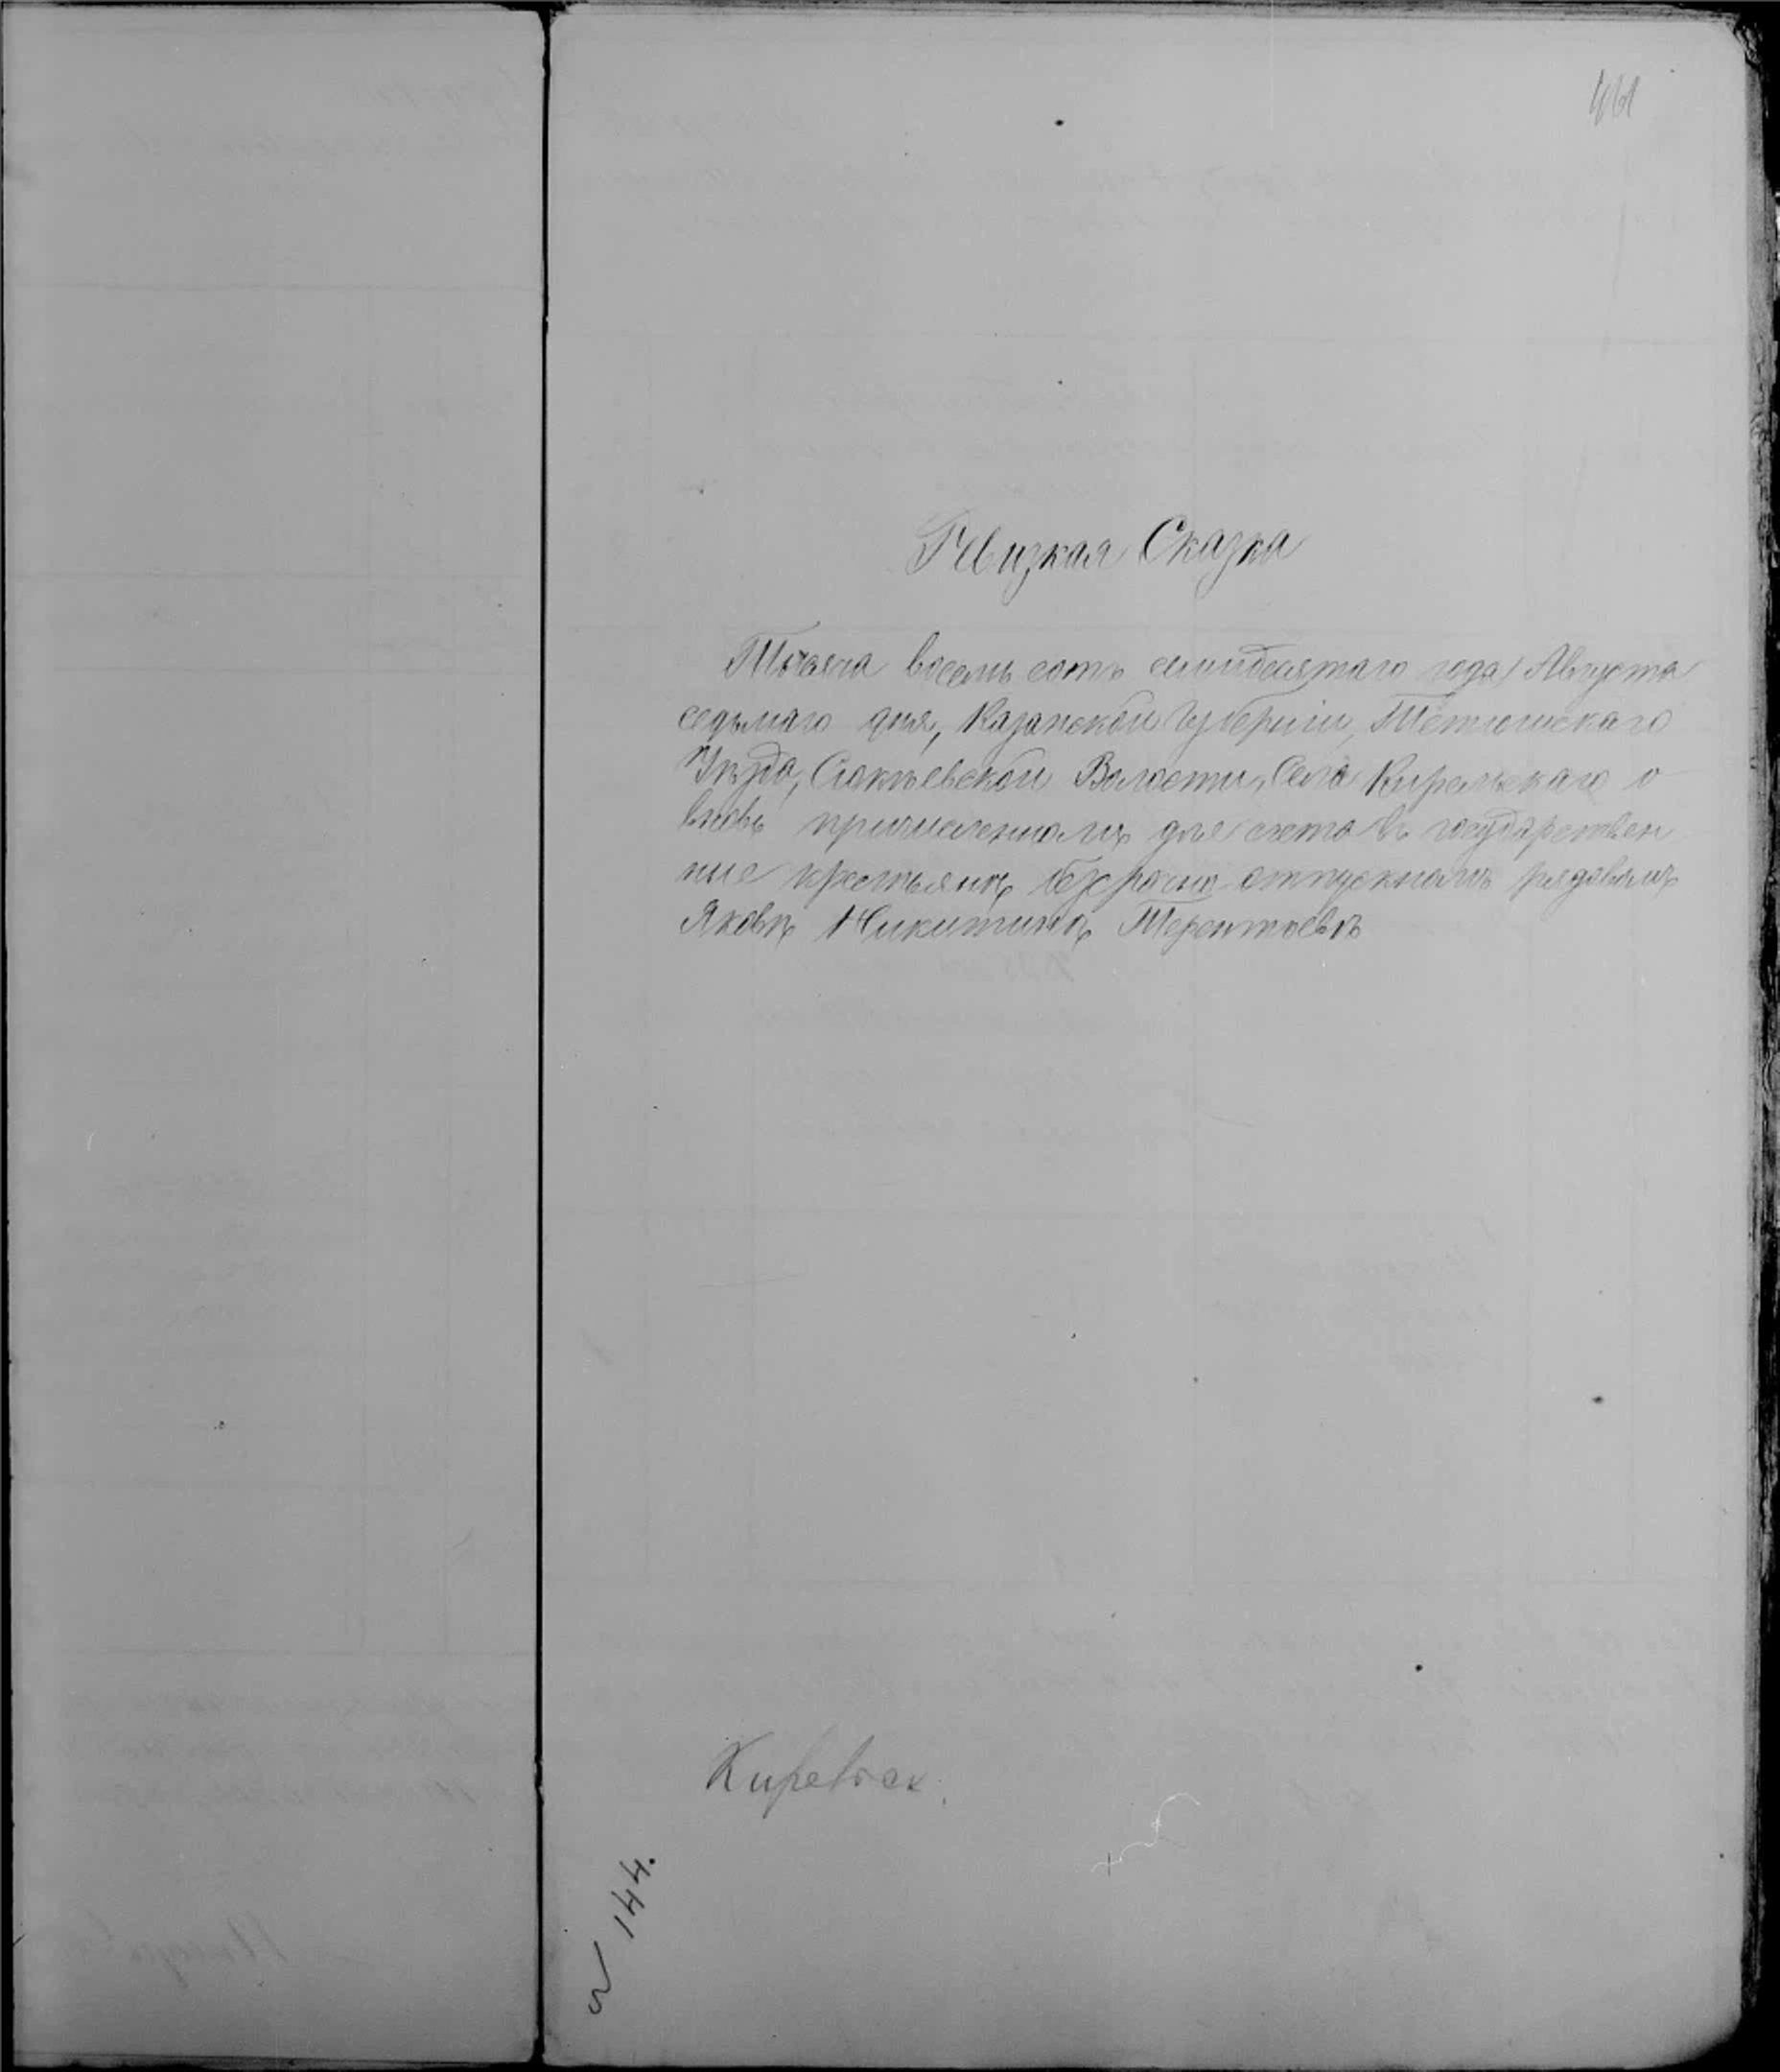 461
Ревизкая Сказка
Тысяча восемь сотъ семидесятаго года Августа
седьмаго дня, Казанской Губерніи, Тетюшскаго
Уѣзда, Сюкѣевской Волости, Села Кирельскаго о
вновь причисленномъ для счета въ государствен
ные крестьянѣ безсрочно отпускномъ рядовомъ
Яковѣ Никитинѣ Терентьевѣ
№ 144.